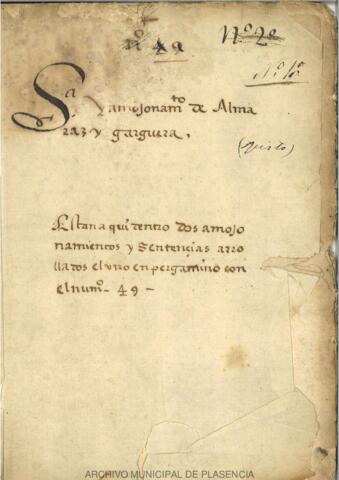 nº 49
Nº 2º
Nº 1º
Sª y amojonamto de Alma
raz y garguera,
(visto)
Estan aqui dentro dos amojo
namientos y Sentencias arro
llados el uno en pergamino con
el numº 49 -
ARCHIVO MUNICIPAL DE PLASENCIA